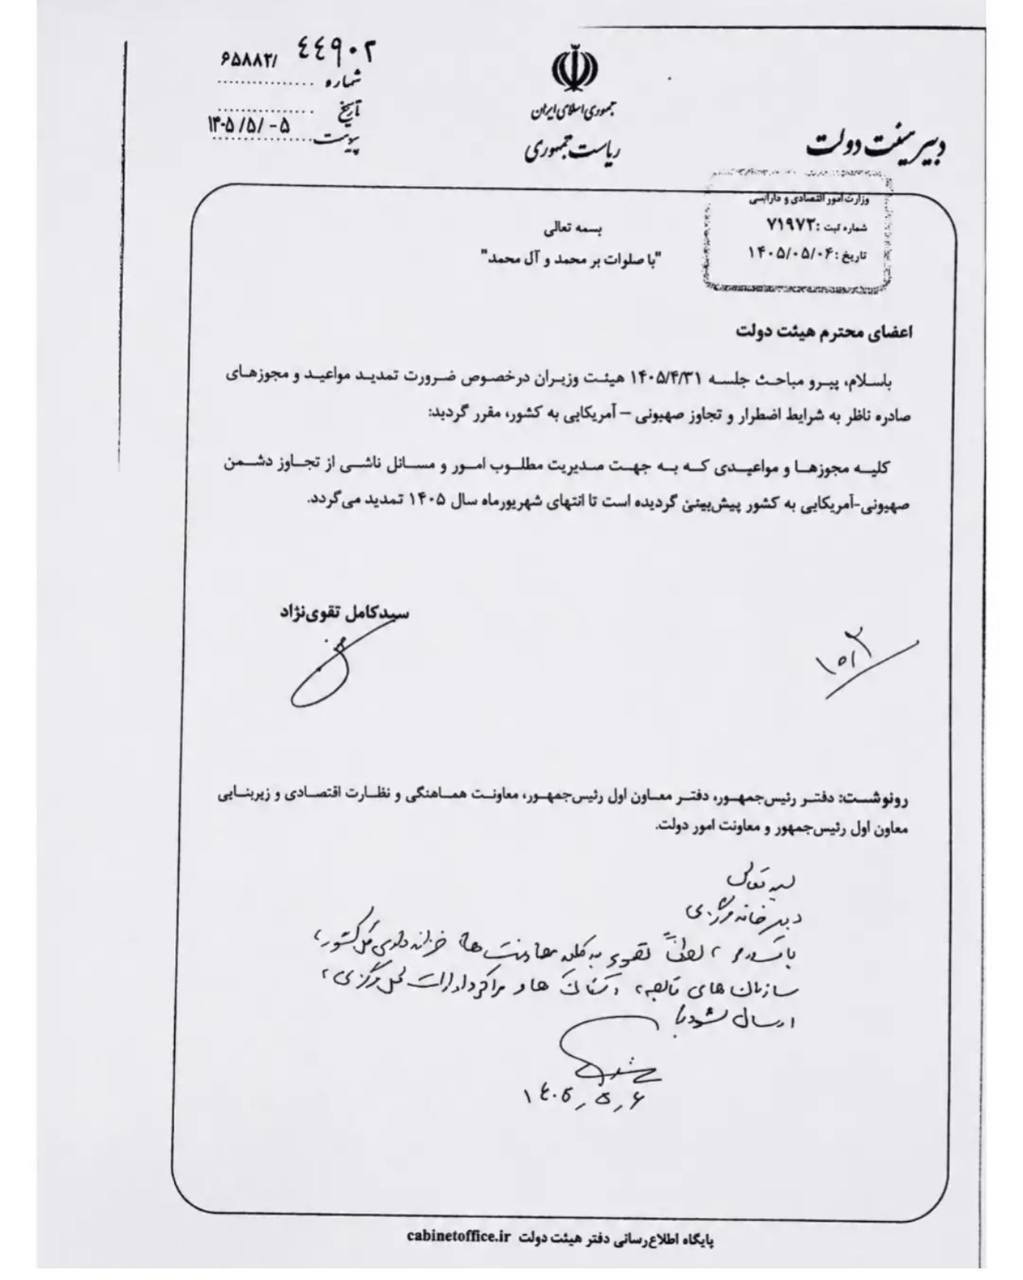 ۴۴۹۰۲ /۶۵۸۸۲
شماره
تاریخ
۱۴۰۵/۵/-۵
پیوست
جمهوری اسلامی ایران
ریاست جمهوری
دبیر هیئت دولت
وزارت امور اقتصادی و دارایی
شماره ثبت :۷۱۹۷۲
تاریخ :۱۴۰۵/۰۵/۰۶
بسمه تعالی
"با صلوات بر محمد و آل محمد"
اعضای محترم هیئت دولت
باسلام، پیرو مباحث جلسه ۱۴۰۵/۴/۳۱ هیئت وزیران درخصوص ضرورت تمدید مواعید و مجوزهای
صادره ناظر به شرایط اضطرار و تجاوز صهیونی – آمریکایی به کشور، مقرر گردید:
کلیه مجوزها و مواعیدی که به جهت مدیریت مطلوب امور و مسائل ناشی از تجاوز دشمن
صهیونی-آمریکایی به کشور پیش‌بینی گردیده است تا انتهای شهریورماه سال ۱۴۰۵ تمدید می‌گردد.
سیدکامل تقوی‌نژاد
رونوشت: دفتر رئیس‌جمهور، دفتر معاون اول رئیس‌جمهور، معاونت هماهنگی و نظارت اقتصادی و زیربنایی
معاون اول رئیس‌جمهور و معاونت امور دولت.
بسمه تعالی
دبیرخانه مرکزی
با سلام، لطفاً تصویر به کلیه معاونت ها، خزانه داری کل کشور،
سازمان های تابعه، استان ها و مراکز و ادارات کل مرکزی،
ارسال شود
۱۴۰۵,۵,۶
پایگاه اطلاع‌رسانی دفتر هیئت دولت cabinetoffice.ir